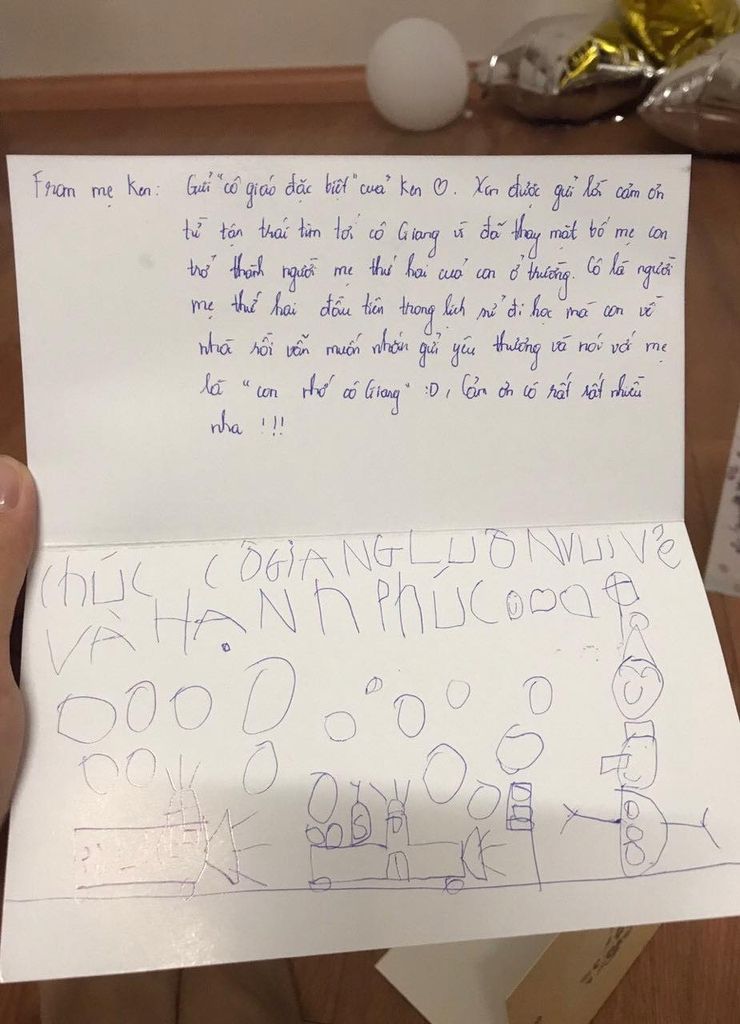 From mẹ Ken: Gửi "cô giáo đặc biệt" của Ken ♡. Xin được gửi lời cảm ơn
từ tận trái tim tới cô Giang vì đã thay mặt bố mẹ con
trở thành người mẹ thứ hai của con ở trường. Cô là người
mẹ thứ hai đầu tiên trong lịch sử đi học mà con về
nhà rồi vẫn muốn nhắn gửi yêu thương và nói với mẹ
là "con nhớ cô Giang" :D, Cảm ơn cô rất rất nhiều
nha !!!
CHÚC CÔ GIANG LUÔN VUI VẺ
VÀ HẠNH PHÚC